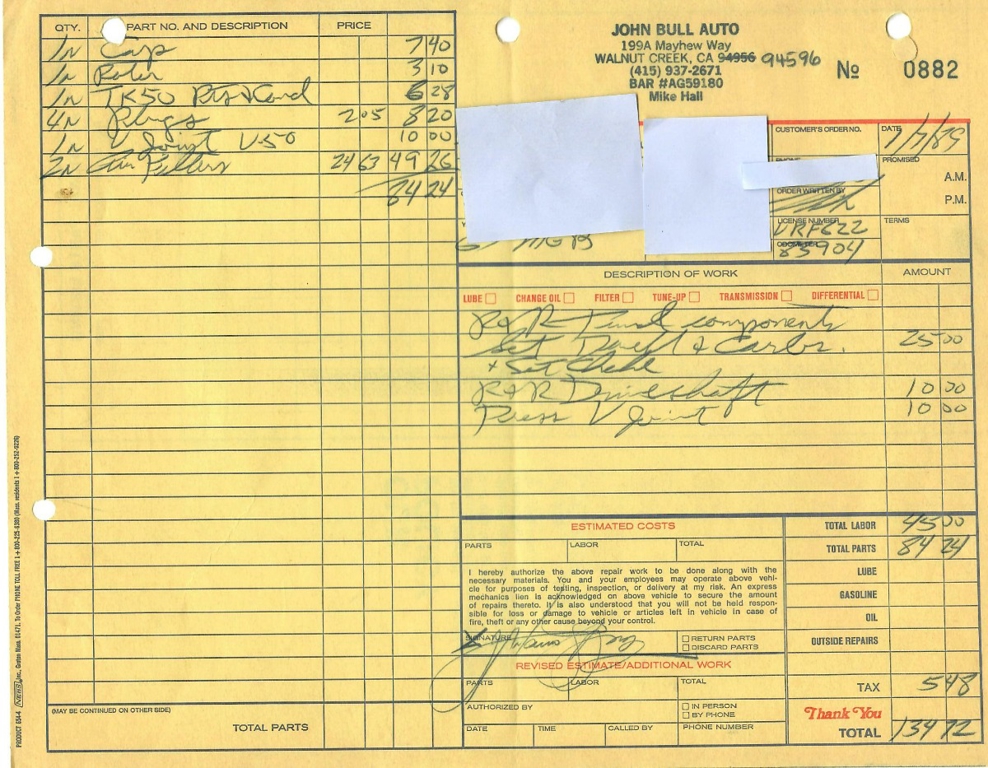 QTY. PART NO. AND DESCRIPTION PRICE
1N Cap 7 40
1N Rotor 3 10
1N TK50 Pts & Cond 6 28
4N Plugs 2.05 8 20
1N U Joint U-50 10 00
2N Air Filters 24 63 49 26
84 24
(MAY BE CONTINUED ON OTHER SIDE)
TOTAL PARTS
JOHN BULL AUTO
199A Mayhew Way
WALNUT CREEK, CA 94956 94596
(415) 937-2671
BAR #AG59180
Mike Hall
No 0882
CUSTOMER'S ORDER NO. DATE
PROMISED
A.M.
ORDER WRITTEN BY
P.M.
LICENSE NUMBER TERMS
VRF622
ODOMETER
83904
MGB
DESCRIPTION OF WORK AMOUNT
LUBE CHANGE OIL FILTER TUNE-UP TRANSMISSION DIFFERENTIAL
R & R Tune components
Set Dwell & Carbs. 25 00
+ Set Choke
R & R Driveshaft 10 00
Press U Joint 10 00
ESTIMATED COSTS
PARTS LABOR TOTAL
I hereby authorize the above repair work to be done along with the
necessary materials. You and your employees may operate above vehi-
cle for purposes of testing, inspection, or delivery at my risk. An express
mechanics lien is acknowledged on above vehicle to secure the amount
of repairs thereto. It is also understood that you will not be held respon-
sible for loss or damage to vehicle or articles left in vehicle in case of
fire, theft or any other cause beyond your control.
SIGNATURE
RETURN PARTS
DISCARD PARTS
REVISED ESTIMATE/ADDITIONAL WORK
PARTS LABOR TOTAL
AUTHORIZED BY
IN PERSON
BY PHONE
DATE TIME CALLED BY PHONE NUMBER
TOTAL LABOR 45 00
TOTAL PARTS 84 24
LUBE
GASOLINE
OIL
OUTSIDE REPAIRS
TAX 5 48
Thank You
TOTAL 134 72